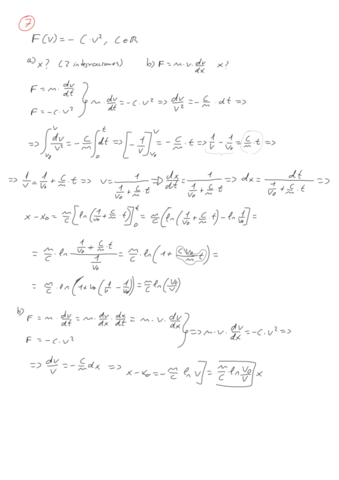 7
F(v) = - C·v², C∈ℝ
a) x? (2 integraciones) b) F = m·v·dv/dx x?
F = m·dv/dt
F = -C·v² } m dv/dt = -C·v² => dv/v² = -C/m·dt =>
=> ∫_{v₀}^{v} dv/v² = -C/m ∫_0^t dt => [-1/v]_{v₀}^{v} = -C/m·t => 1/v - 1/v₀ = C/m·t =>
=> 1/v = 1/v₀ + C/m·t => v = 1/(1/v₀ + C/m·t) => dx/dt = 1/(1/v₀ + C/m·t) => dx = dt/(1/v₀ + C/m·t) =>
x - x₀ = m/C [ln(1/v₀ + C/m t)]_0^t = m/C [ln(1/v₀ + C/m·t) - ln 1/v₀] =
= m/C·ln (1/v₀ + C/m·t)/(1/v₀) = m/C·ln(1 + Cv₀/m t) =
= m/C·ln(1 + v₀(1/v - 1/v₀)) = m/C ln(v₀/v)
b) F = m·dv/dt = m·dv/dx dx/dt = m·v·dv/dx
F = -C·v² } => m·v·dv/dx = -C·v² =>
=> dv/v = -C/m dx => x - x₀ = -m/C ln v] = m/C ln v₀/v x